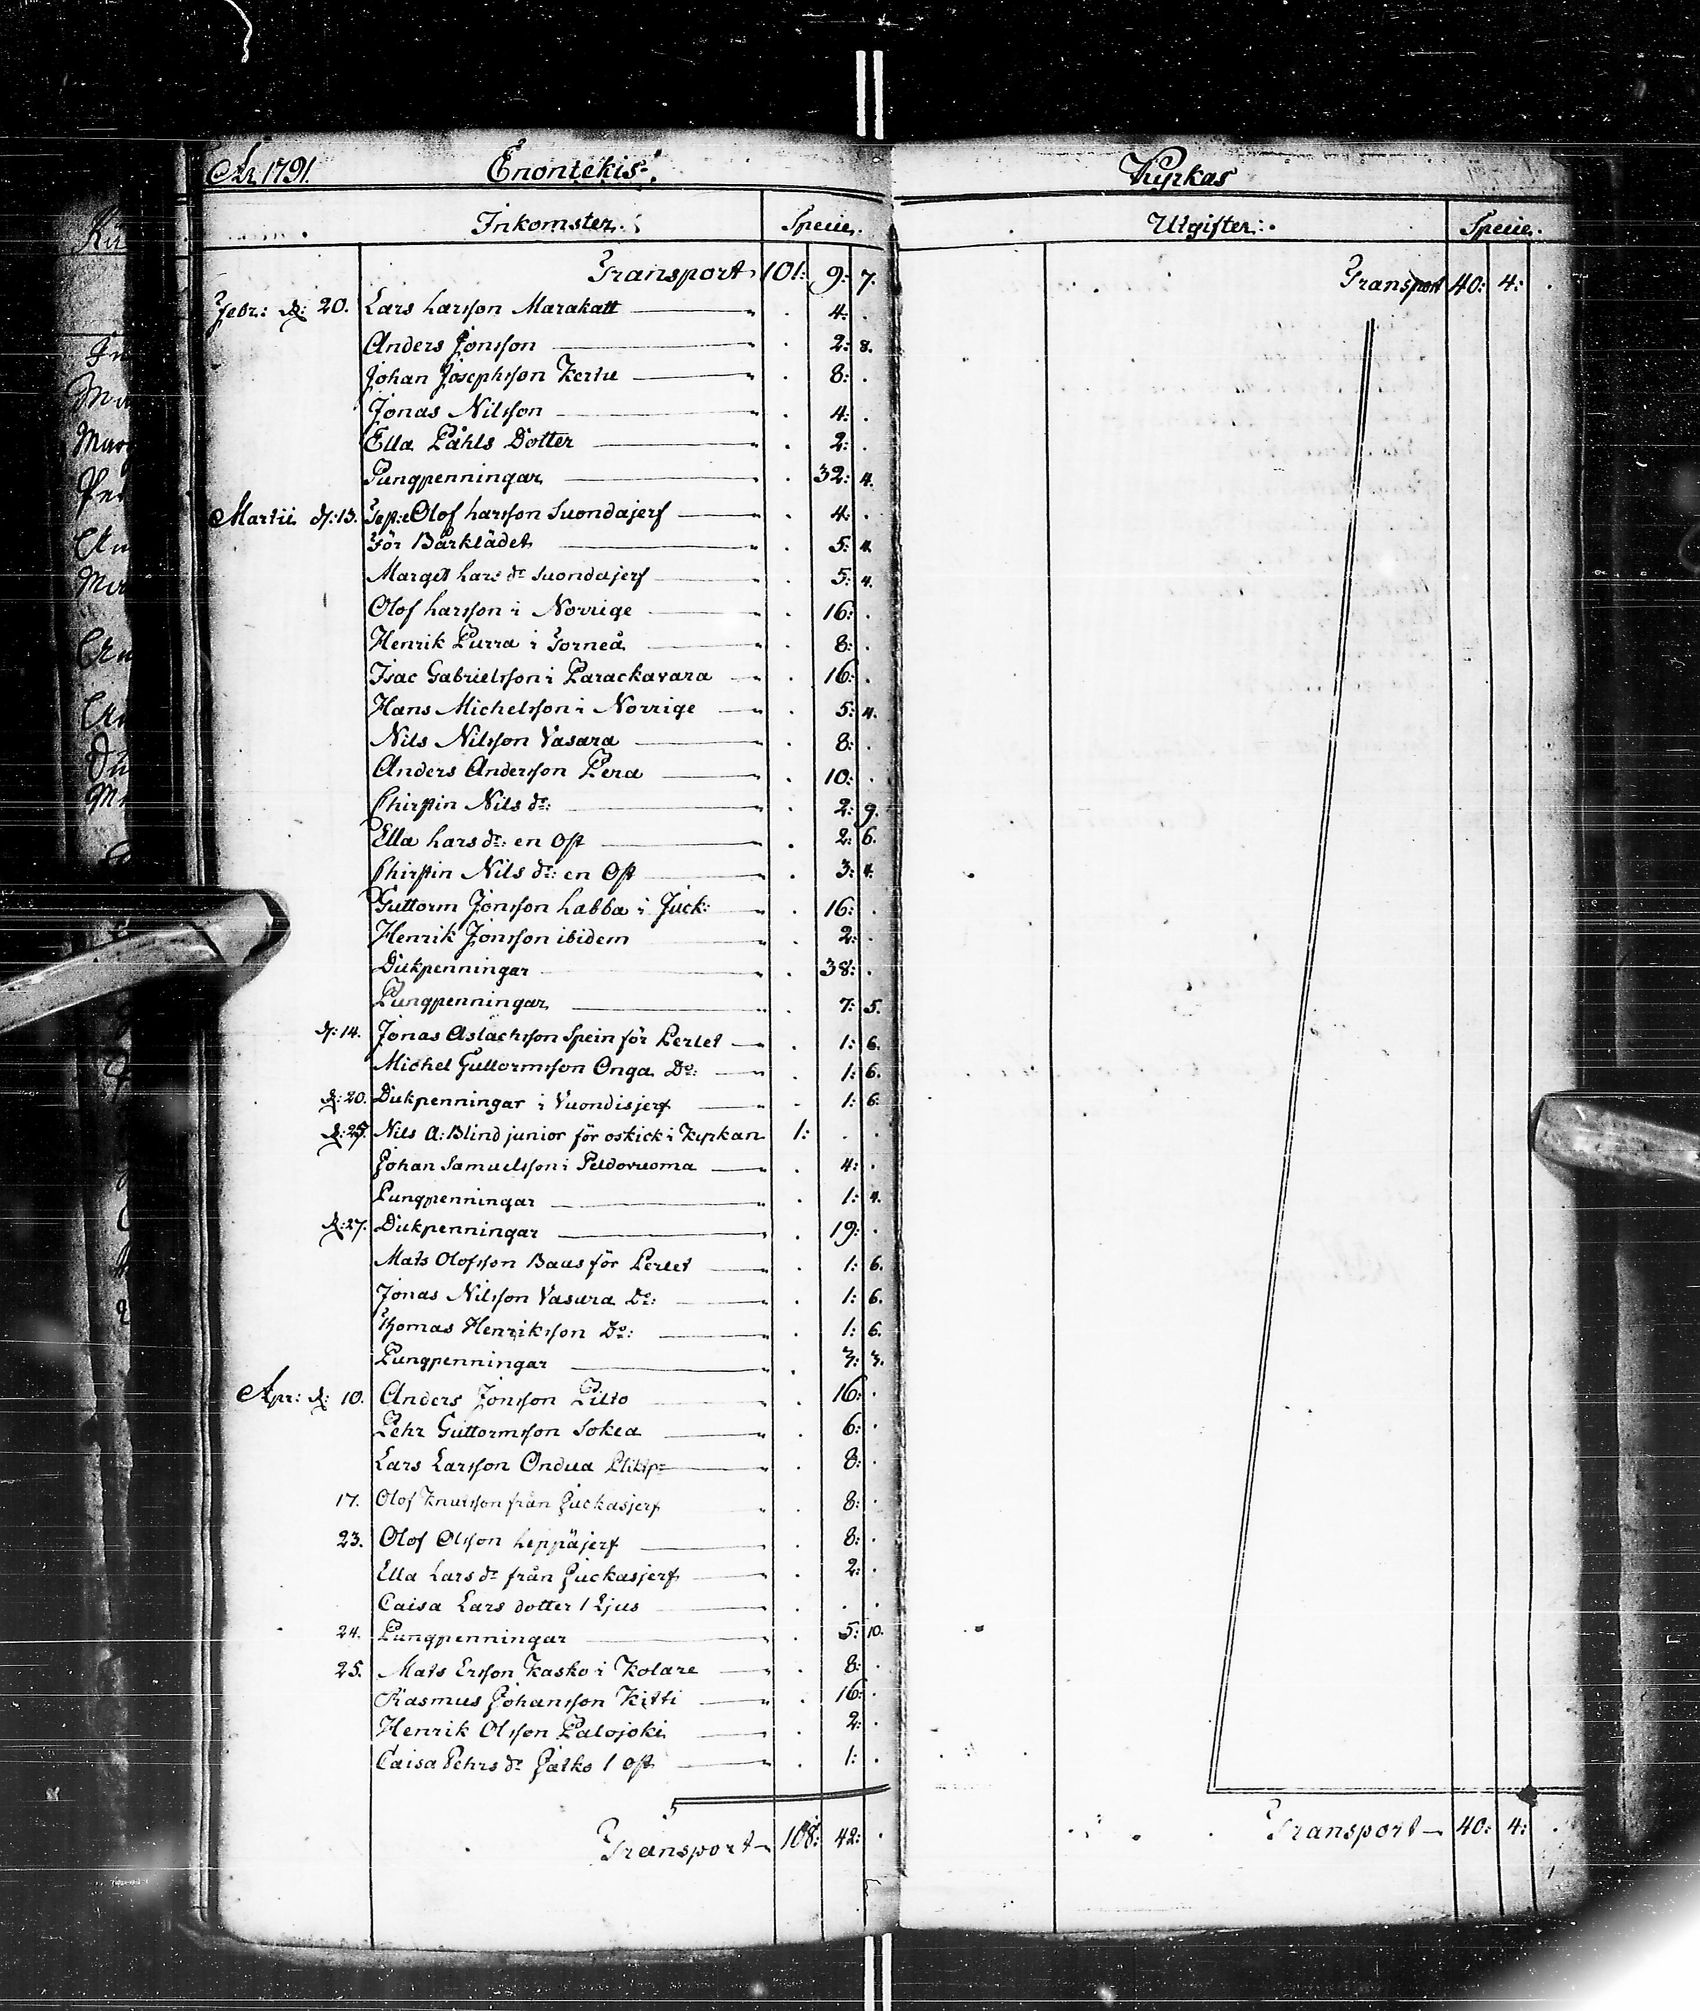 År 1791. Enontekis
Inkomster. Specie.
Transport 101: 9: 7.
Febr: d: 20. Lars Larsson Marakatt 4: .
Anders Jonsson 2: 8.
Johan Josephsson Kertu 8: .
Jonas Nilsson 4: .
Ella Påhls Dotter 2: .
Pungpenningar 32: 4.
Martii d: 13. Test: Olof Larsson Suondajerf 4: .
För Bårklädet 5: 4.
Marget Lars dr Suondajerf 5: 4.
Olof Larsson i Norrige 16: .
Henrik Purra i Torneå 8: .
Isac Gabrielsson i Parackavara 16: .
Hans Michelsson i Norrige 5: 4.
Nils Nilsson Vasara 8: .
Anders Andersson Pera 10: .
Chirstin Nils dr: 2: 9.
Ella Lars dr: en Ost 2: 6.
Chirstin Nils dr: en Ost 3: 4.
Guttorm Jonsson Labba i Juck: 16: .
Henrik Jonsson ibidem 2: .
Diskpenningar 38: .
Pungpenningar 7: 5.
d: 14. Jonas Aslachsson Spein för Perlet 1: 6.
Michel Guttormsson Onga Do: 1: 6.
d: 20. Diskpenningar i Vuondisjerf 1: 6.
d: 25. Nils A: Blind junior för oskick i Kyrkan 1: . .
Johan Samuelsson i Peldovuoma 4: .
Pungpenningar 1: 4.
d: 27. Diskpenningar 19: .
Mats Olofsson Baus för Perlet 1: 6.
Jonas Nilsson Vasara Do: 1: 6.
Thomas Henriksson Do: 1: 6.
Pungpenningar 3: 3.
Apr: d: 10. Anders Jonsson Pilto 16: .
Pehr Guttormsson Sokea 6: .
Lars Larsson Ondua 8: .
17. Olof Knutsson från Juckasjerf 8: .
23. Olof Olsson Leppäjerf 8: .
Ella Lars dr från Juckasjerf 2: .
Caisa Lars dotter 1 Ljus . .
24. Pungpenningar 5: 10.
25. Mats Ersson Kasko i Kolare 8: .
Rasmus Johansson Kitti 16: .
Henrik Olsson Palojoki 2: .
Caisa Pehrs dr Jatko 1 Ost 1: .
Transport 108: 42: .
Kyrkas
Utgifter. Specie.
Transport 40: 4: .
Transport 40: 4: .